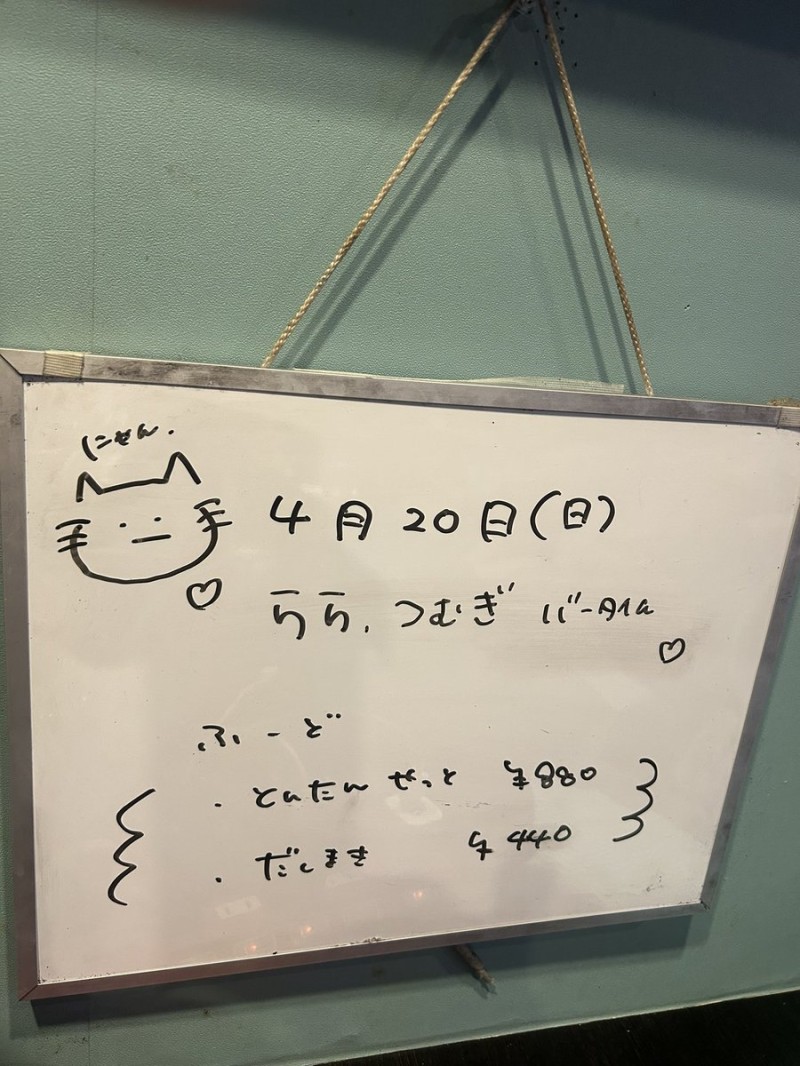 にせん.
4月20日(日)
らら、つむぎ バータイム
ふーど
・とんたんせっと ¥880
・だしまき ¥440